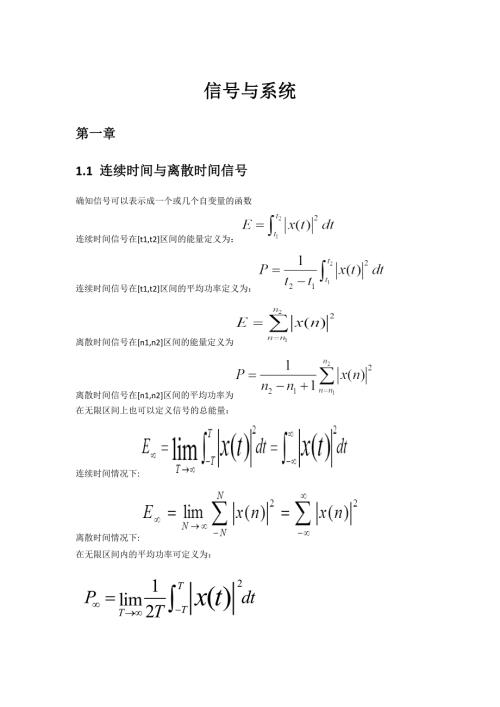 信号与系统
第一章
1.1 连续时间与离散时间信号
确知信号可以表示成一个或几个自变量的函数
连续时间信号在[t1,t2]区间的能量定义为: E = ∫_{t₁}^{t₂} |x(t)|² dt
连续时间信号在[t1,t2]区间的平均功率定义为: P = 1/(t₂−t₁) ∫_{t₁}^{t₂} |x(t)|² dt
离散时间信号在[n1,n2]区间的能量定义为 E = ∑_{n=n₁}^{n₂} |x(n)|²
离散时间信号在[n1,n2]区间的平均功率为 P = 1/(n₂−n₁+1) ∑_{n=n₁}^{n₂} |x(n)|²
在无限区间上也可以定义信号的总能量:
连续时间情况下: E_∞ = lim_{T→∞} ∫_{−T}^{T} |x(t)|² dt = ∫_{−∞}^{∞} |x(t)|² dt
离散时间情况下: E_∞ = lim_{N→∞} ∑_{−N}^{N} |x(n)|² = ∑_{−∞}^{∞} |x(n)|²
在无限区间内的平均功率可定义为:
P_∞ = lim_{T→∞} 1/(2T) ∫_{−T}^{T} |x(t)|² dt